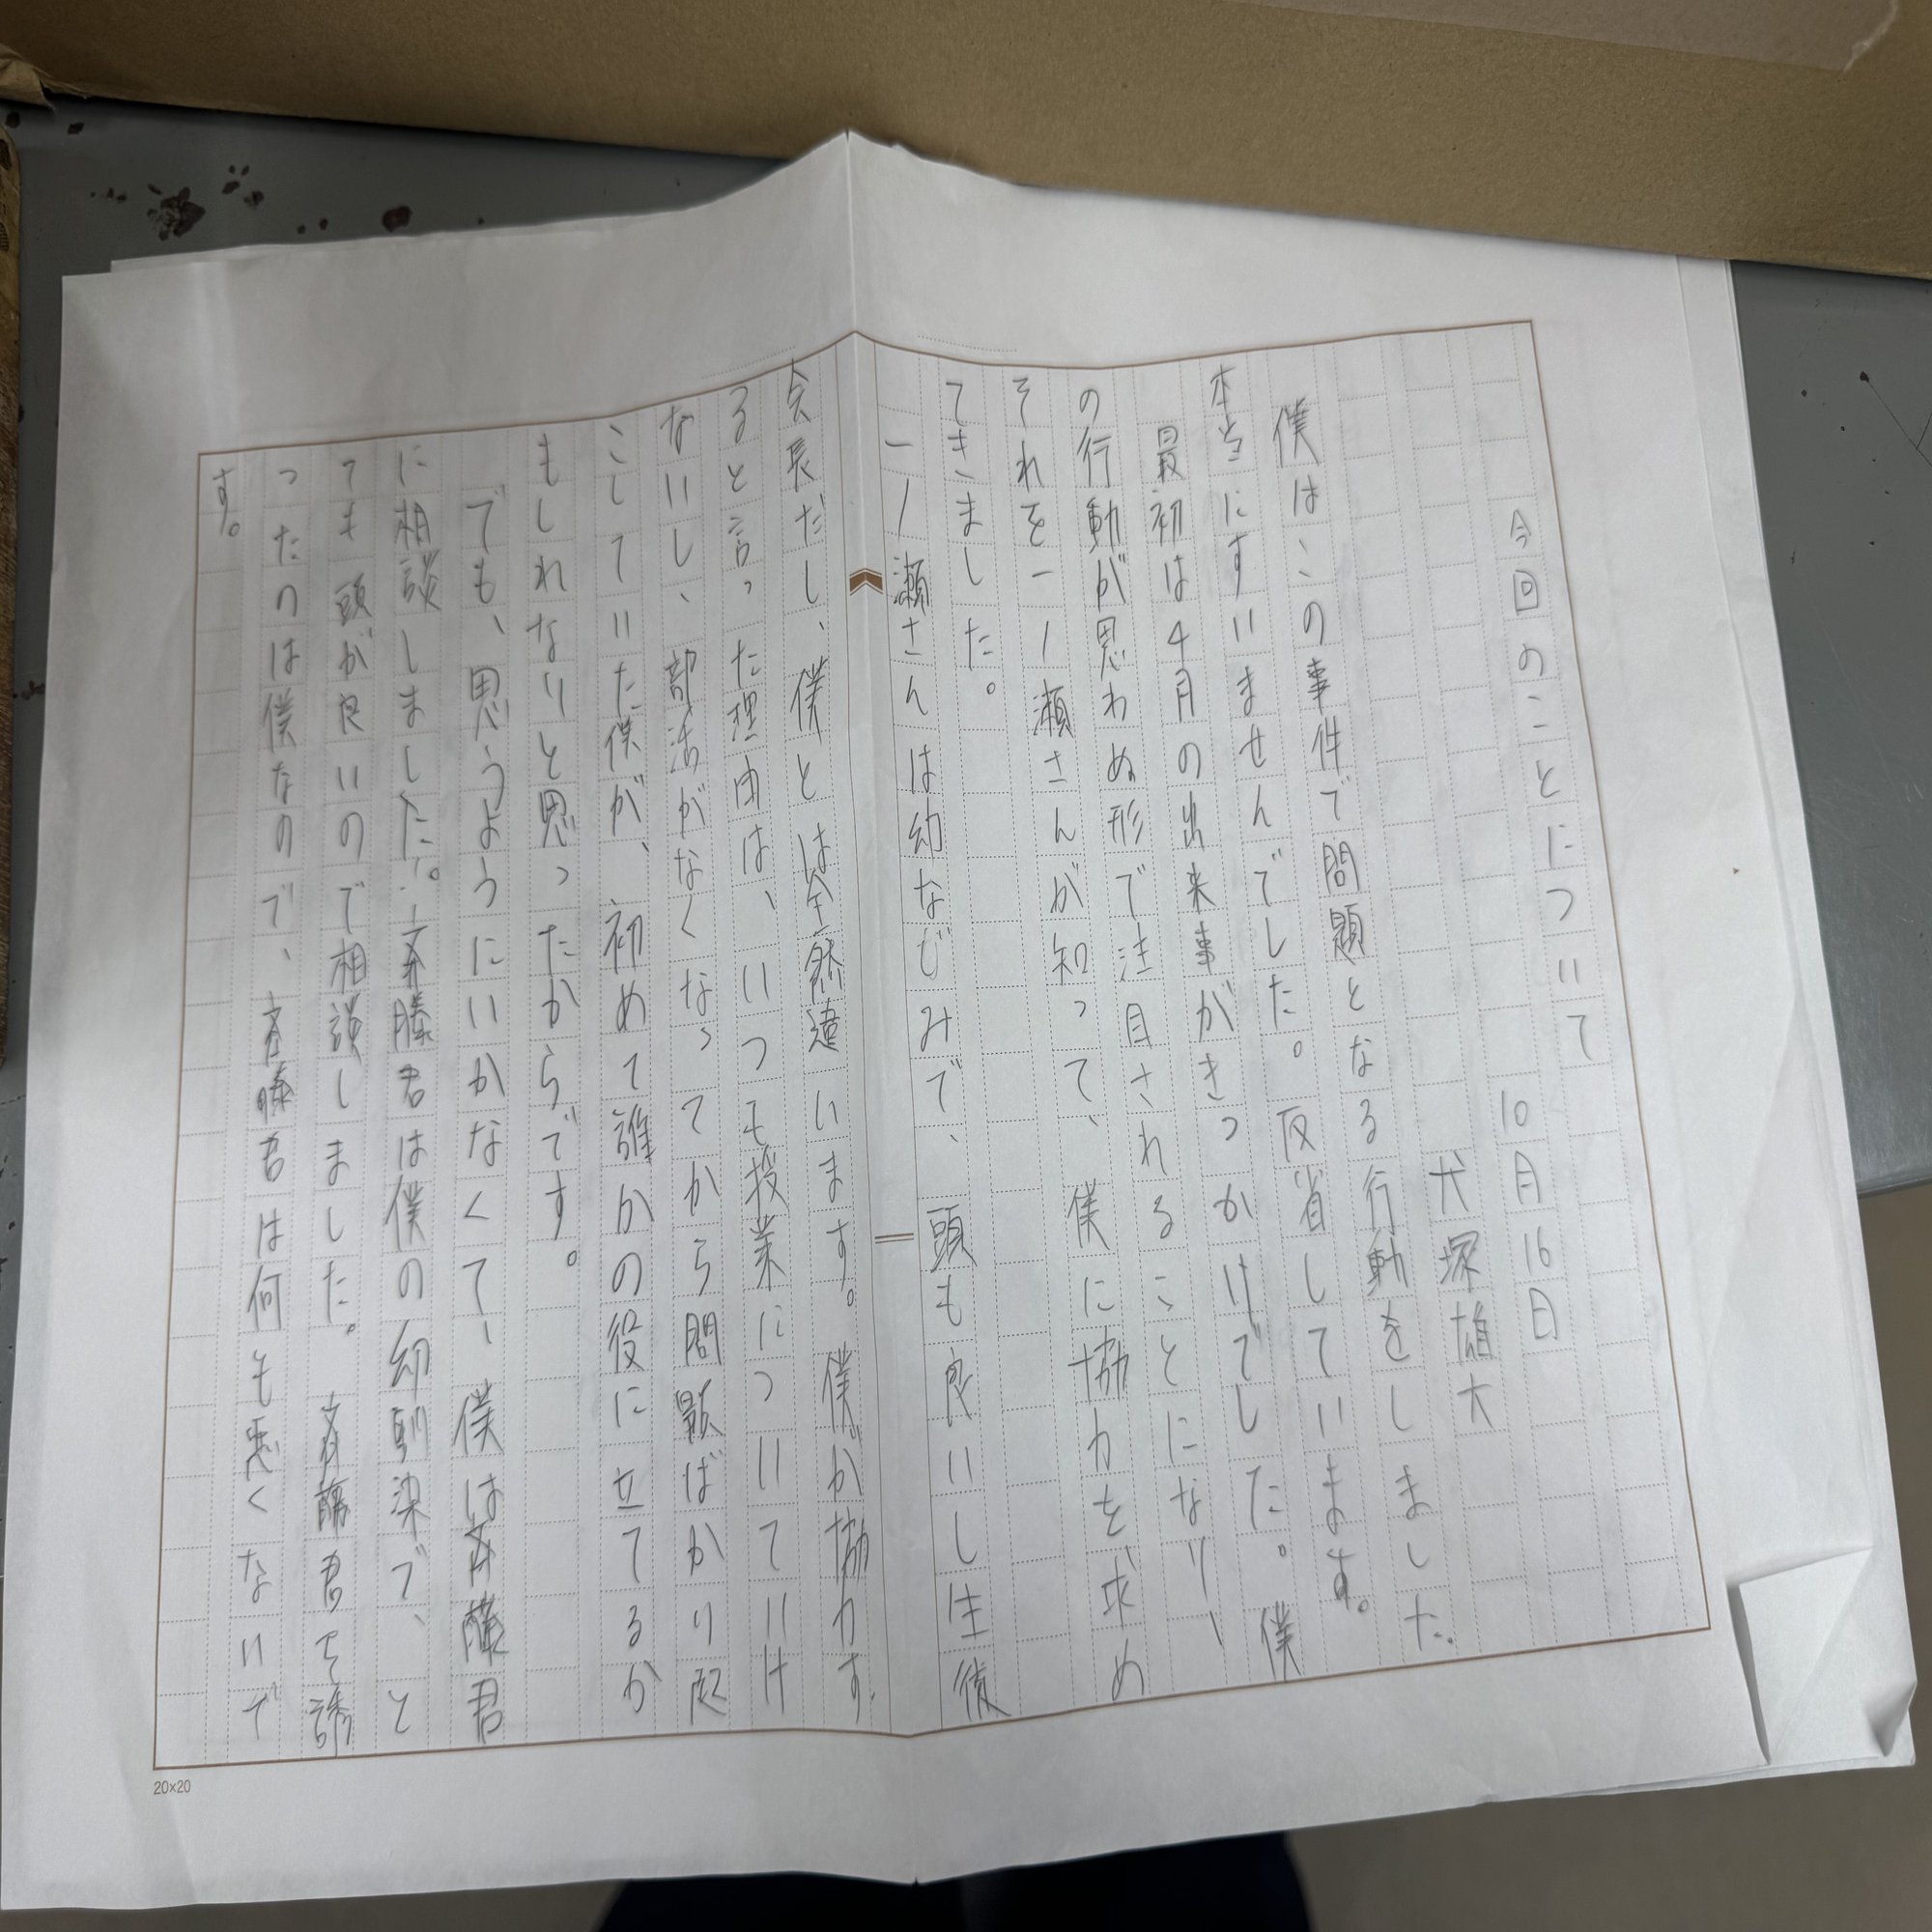 今回のことについて
10月16日
犬塚雄大
僕はこの事件で問題となる行動をしました。
本当にすいませんでした。反省しています。
最初は4月の出来事がきっかけでした。僕
の行動が思わぬ形で注目されることになり、
それを一ノ瀬さんが知って、僕に協力を求め
てきました。
一ノ瀬さんは幼なじみで、頭も良いし生徒
会長だし、僕とは全然違います。僕が協力す
ると言った理由は、いつも授業についていけ
ないし、部活がなくなってから問題ばかり起
こしていた僕が、初めて誰かの役に立てるか
もしれないと思ったからです。
でも、思うようにいかなくて、僕は斉藤君
に相談しました。斉藤君は僕の幼馴染で、と
ても頭が良いので相談しました。斉藤君を誘
ったのは僕なので、斉藤君は何も悪くないで
す。
20×20